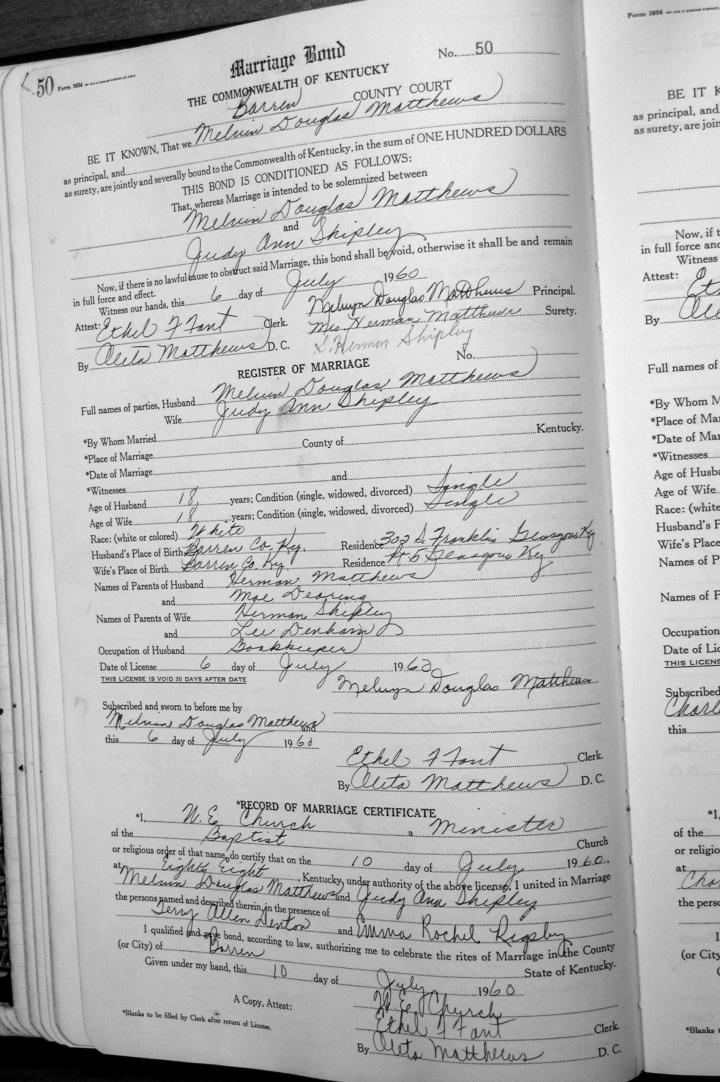 50 Form 3654
Marriage Bond
No. 50
THE COMMONWEALTH OF KENTUCKY
Barren COUNTY COURT
BE IT KNOWN, That we Melvin Douglas Matthews
as principal, and
as surety, are jointly and severally bound to the Commonwealth of Kentucky, in the sum of ONE HUNDRED DOLLARS
THIS BOND IS CONDITIONED AS FOLLOWS:
That, whereas Marriage is intended to be solemnized between
Melvin Douglas Matthews
and
Judy Ann Shipley
Now, if there is no lawful cause to obstruct said Marriage, this bond shall be void, otherwise it shall be and remain
in full force and effect.
Witness our hands, this 6 day of July 1960
Attest: Ethel F Fant Clerk. Melvyn Douglas Matthews Principal.
Mrs. Herman Matthews Surety.
By Oleta Matthews D. C. S. Hermon Shipley
REGISTER OF MARRIAGE No.
Full names of parties, Husband Melvin Douglas Matthews
Wife Judy Ann Shipley
*By Whom Married
*Place of Marriage County of Kentucky.
*Date of Marriage
*Witnesses and
Age of Husband 18 years; Condition (single, widowed, divorced) Single
Age of Wife 18 years; Condition (single, widowed, divorced) Single
Race: (white or colored) White
Husband's Place of Birth Barren Co. Ky. Residence 302 S. Franklin Glasgow Ky
Wife's Place of Birth Barren Co. Ky. Residence Rt 5 Glasgow Ky
Names of Parents of Husband Herman Matthews
and Mae Dearing
Names of Parents of Wife Herman Shipley
and Lee Denham
Occupation of Husband Bookkeeper
Date of License 6 day of July 1960
THIS LICENSE IS VOID 30 DAYS AFTER DATE
Melvyn Douglas Matthews
Subscribed and sworn to before me by
Melvin Douglas Matthews and
this 6 day of July 1960
Ethel F Fant Clerk.
By Oleta Matthews D. C.
*RECORD OF MARRIAGE CERTIFICATE
*I, W. E. Church a Minister
of the Baptist Church
or religious order of that name, do certify that on the 10 day of July 1960,
at Eighty Eight, Kentucky, under authority of the above license, I united in Marriage
Melvin Douglas Matthews and Judy Ann Shipley
the persons named and described therein, in the presence of
Terry Allen Denton and Emma Rochel Rigsby
I qualified and gave bond, according to law, authorizing me to celebrate the rites of Marriage in the County
(or City) of Barren State of Kentucky.
Given under my hand, this 10 day of July 1960
W. E. Church
A Copy, Attest: Ethel F Fant Clerk.
*Blanks to be filled by Clerk after return of License.
By Oleta Matthews D. C.
Form 3654
BE IT K
as principal, and
as surety, are join
Now, if t
in full force and
Witness
Attest:
By
Full names of
*By Whom M
*Place of Mar
*Date of Mar
*Witnesses
Age of Husba
Age of Wife
Race: (white
Husband's P
Wife's Place
Names of P
Names of P
Occupation
Date of Lic
THIS LICENS
Subscribed
Charl
this
*I,
of the
or religiou
at
Cha
the perso
I
(or City)
*Blanks t